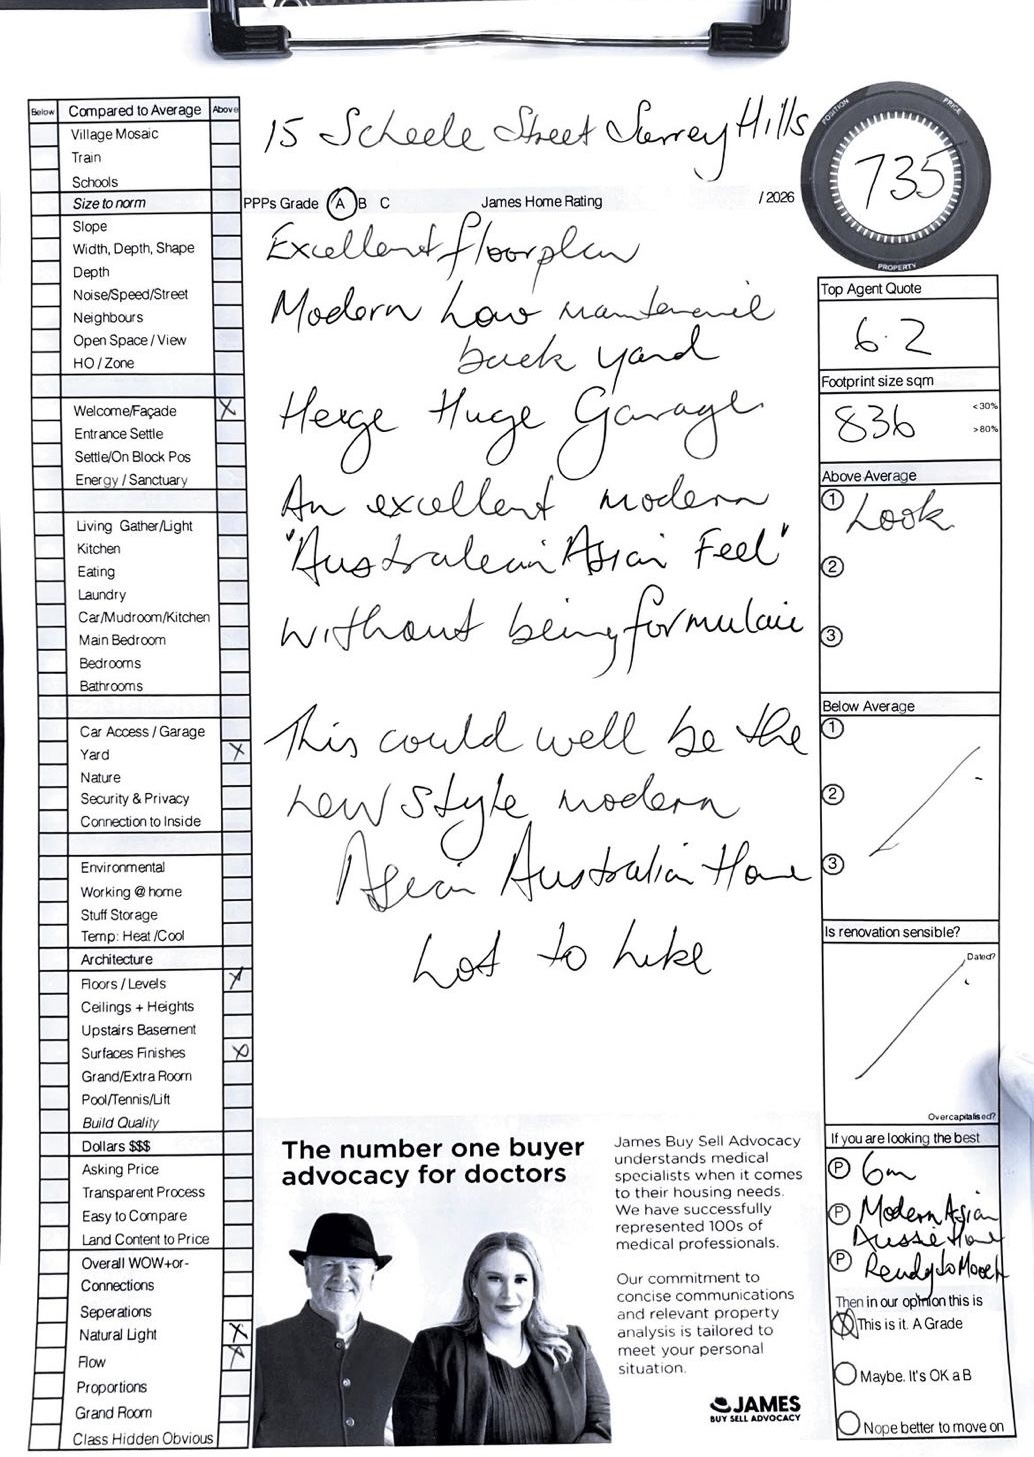 Below Compared to Average Above
Village Mosaic
Train
Schools
Size to norm
Slope
Width, Depth, Shape
Depth
Noise/Speed/Street
Neighbours
Open Space / View
HO / Zone
Welcome/Façade X
Entrance Settle
Settle/On Block Pos
Energy / Sanctuary
Living Gather/Light
Kitchen
Eating
Laundry
Car/Mudroom/Kitchen
Main Bedroom
Bedrooms
Bathrooms
Car Access / Garage
Yard X
Nature
Security & Privacy
Connection to Inside
Environmental
Working @ home
Stuff Storage
Temp: Heat /Cool
Architecture
Floors / Levels X
Ceilings + Heights
Upstairs Basement
Surfaces Finishes X
Grand/Extra Room
Pool/Tennis/Lift
Build Quality
Dollars $$$
Asking Price
Transparent Process
Easy to Compare
Land Content to Price
Overall WOW+or-
Connections
Seperations
Natural Light X
Flow X
Proportions
Grand Room
Class Hidden Obvious
15 Scheele Street Surrey Hills
PPPs Grade A B C James Home Rating / 2026
Excellent floorplan
Modern Low
back yard
Huge Garage
An excellent modern
"Australian Asian Feel"
without being formulaic
This could well be the
new style modern
Asian Australian Home
Lot to Like
The number one buyer
advocacy for doctors
James Buy Sell Advocacy
understands medical
specialists when it comes
to their housing needs.
We have successfully
represented 100s of
medical professionals.
Our commitment to
concise communications
and relevant property
analysis is tailored to
meet your personal
situation.
JAMES
BUY SELL ADVOCACY
POSITION PRICE
735
PROPERTY
Top Agent Quote
6.2
Footprint size sqm
836 <30%
>80%
Above Average
1 Look
2
3
Below Average
1
2
3
Is renovation sensible?
Dated?
Overcapitalised?
If you are looking the best
P 6m
P Modern Asian
Aussie Home
P Ready to
Then in our opinion this is
X This is it. A Grade
Maybe. It's OK a B
Nope better to move on